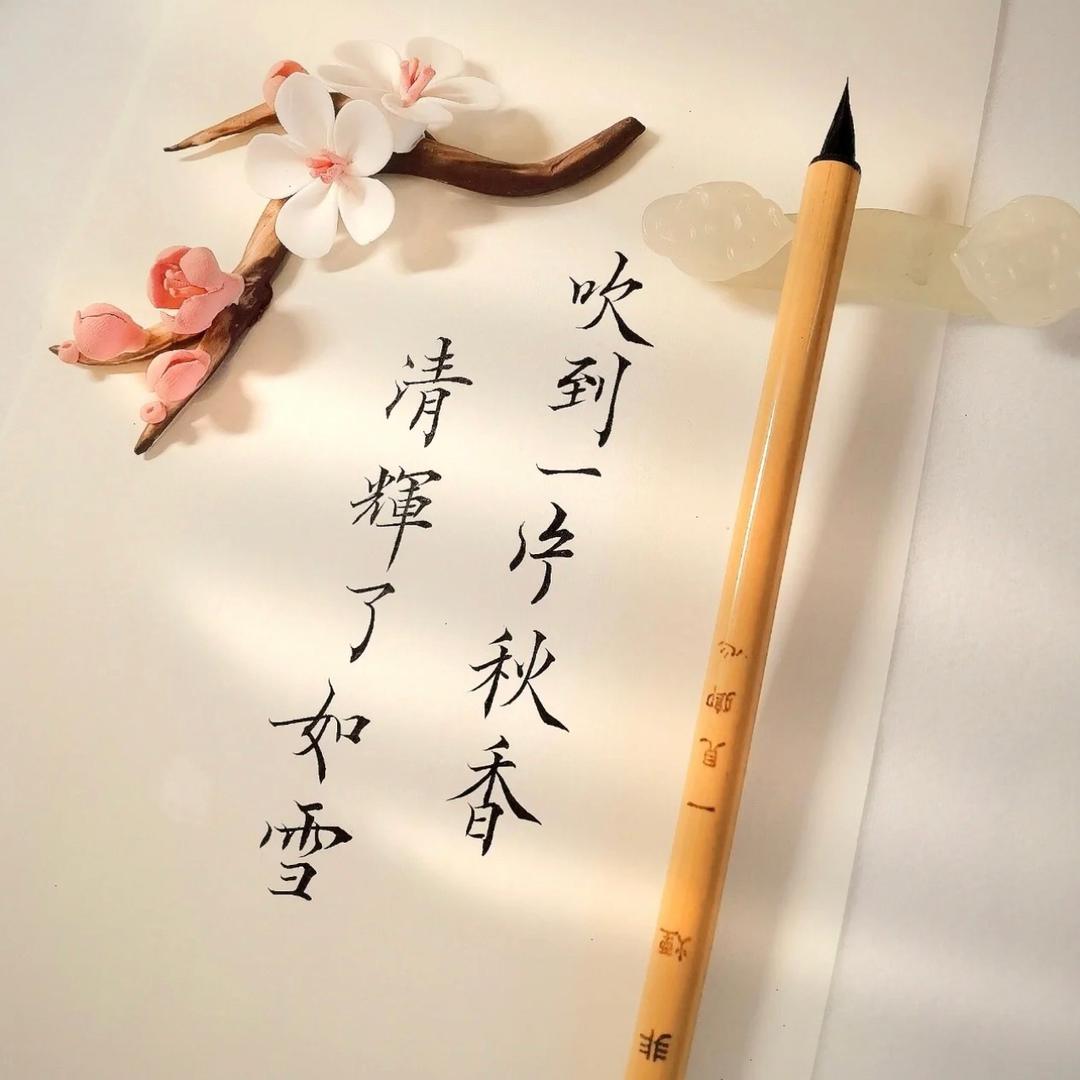 吹到一片秋香
清輝了如雪
一見卿心
非煙